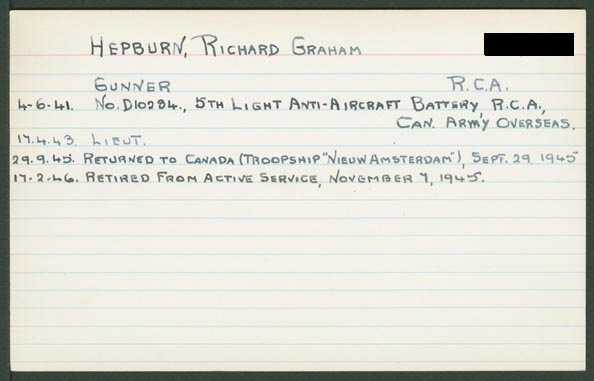 HEPBURN, RICHARD GRAHAM
GUNNER R.C.A.
4-6-41. No. D10284., 5TH LIGHT ANTI-AIRCRAFT BATTERY, R.C.A.,
CAN. ARMY OVERSEAS.
17.4.43. LIEUT.
29.9.45. RETURNED TO CANADA (TROOPSHIP "NIEUW AMSTERDAM"), SEPT. 29, 1945
17-2-46. RETIRED FROM ACTIVE SERVICE, NOVEMBER 7, 1945.